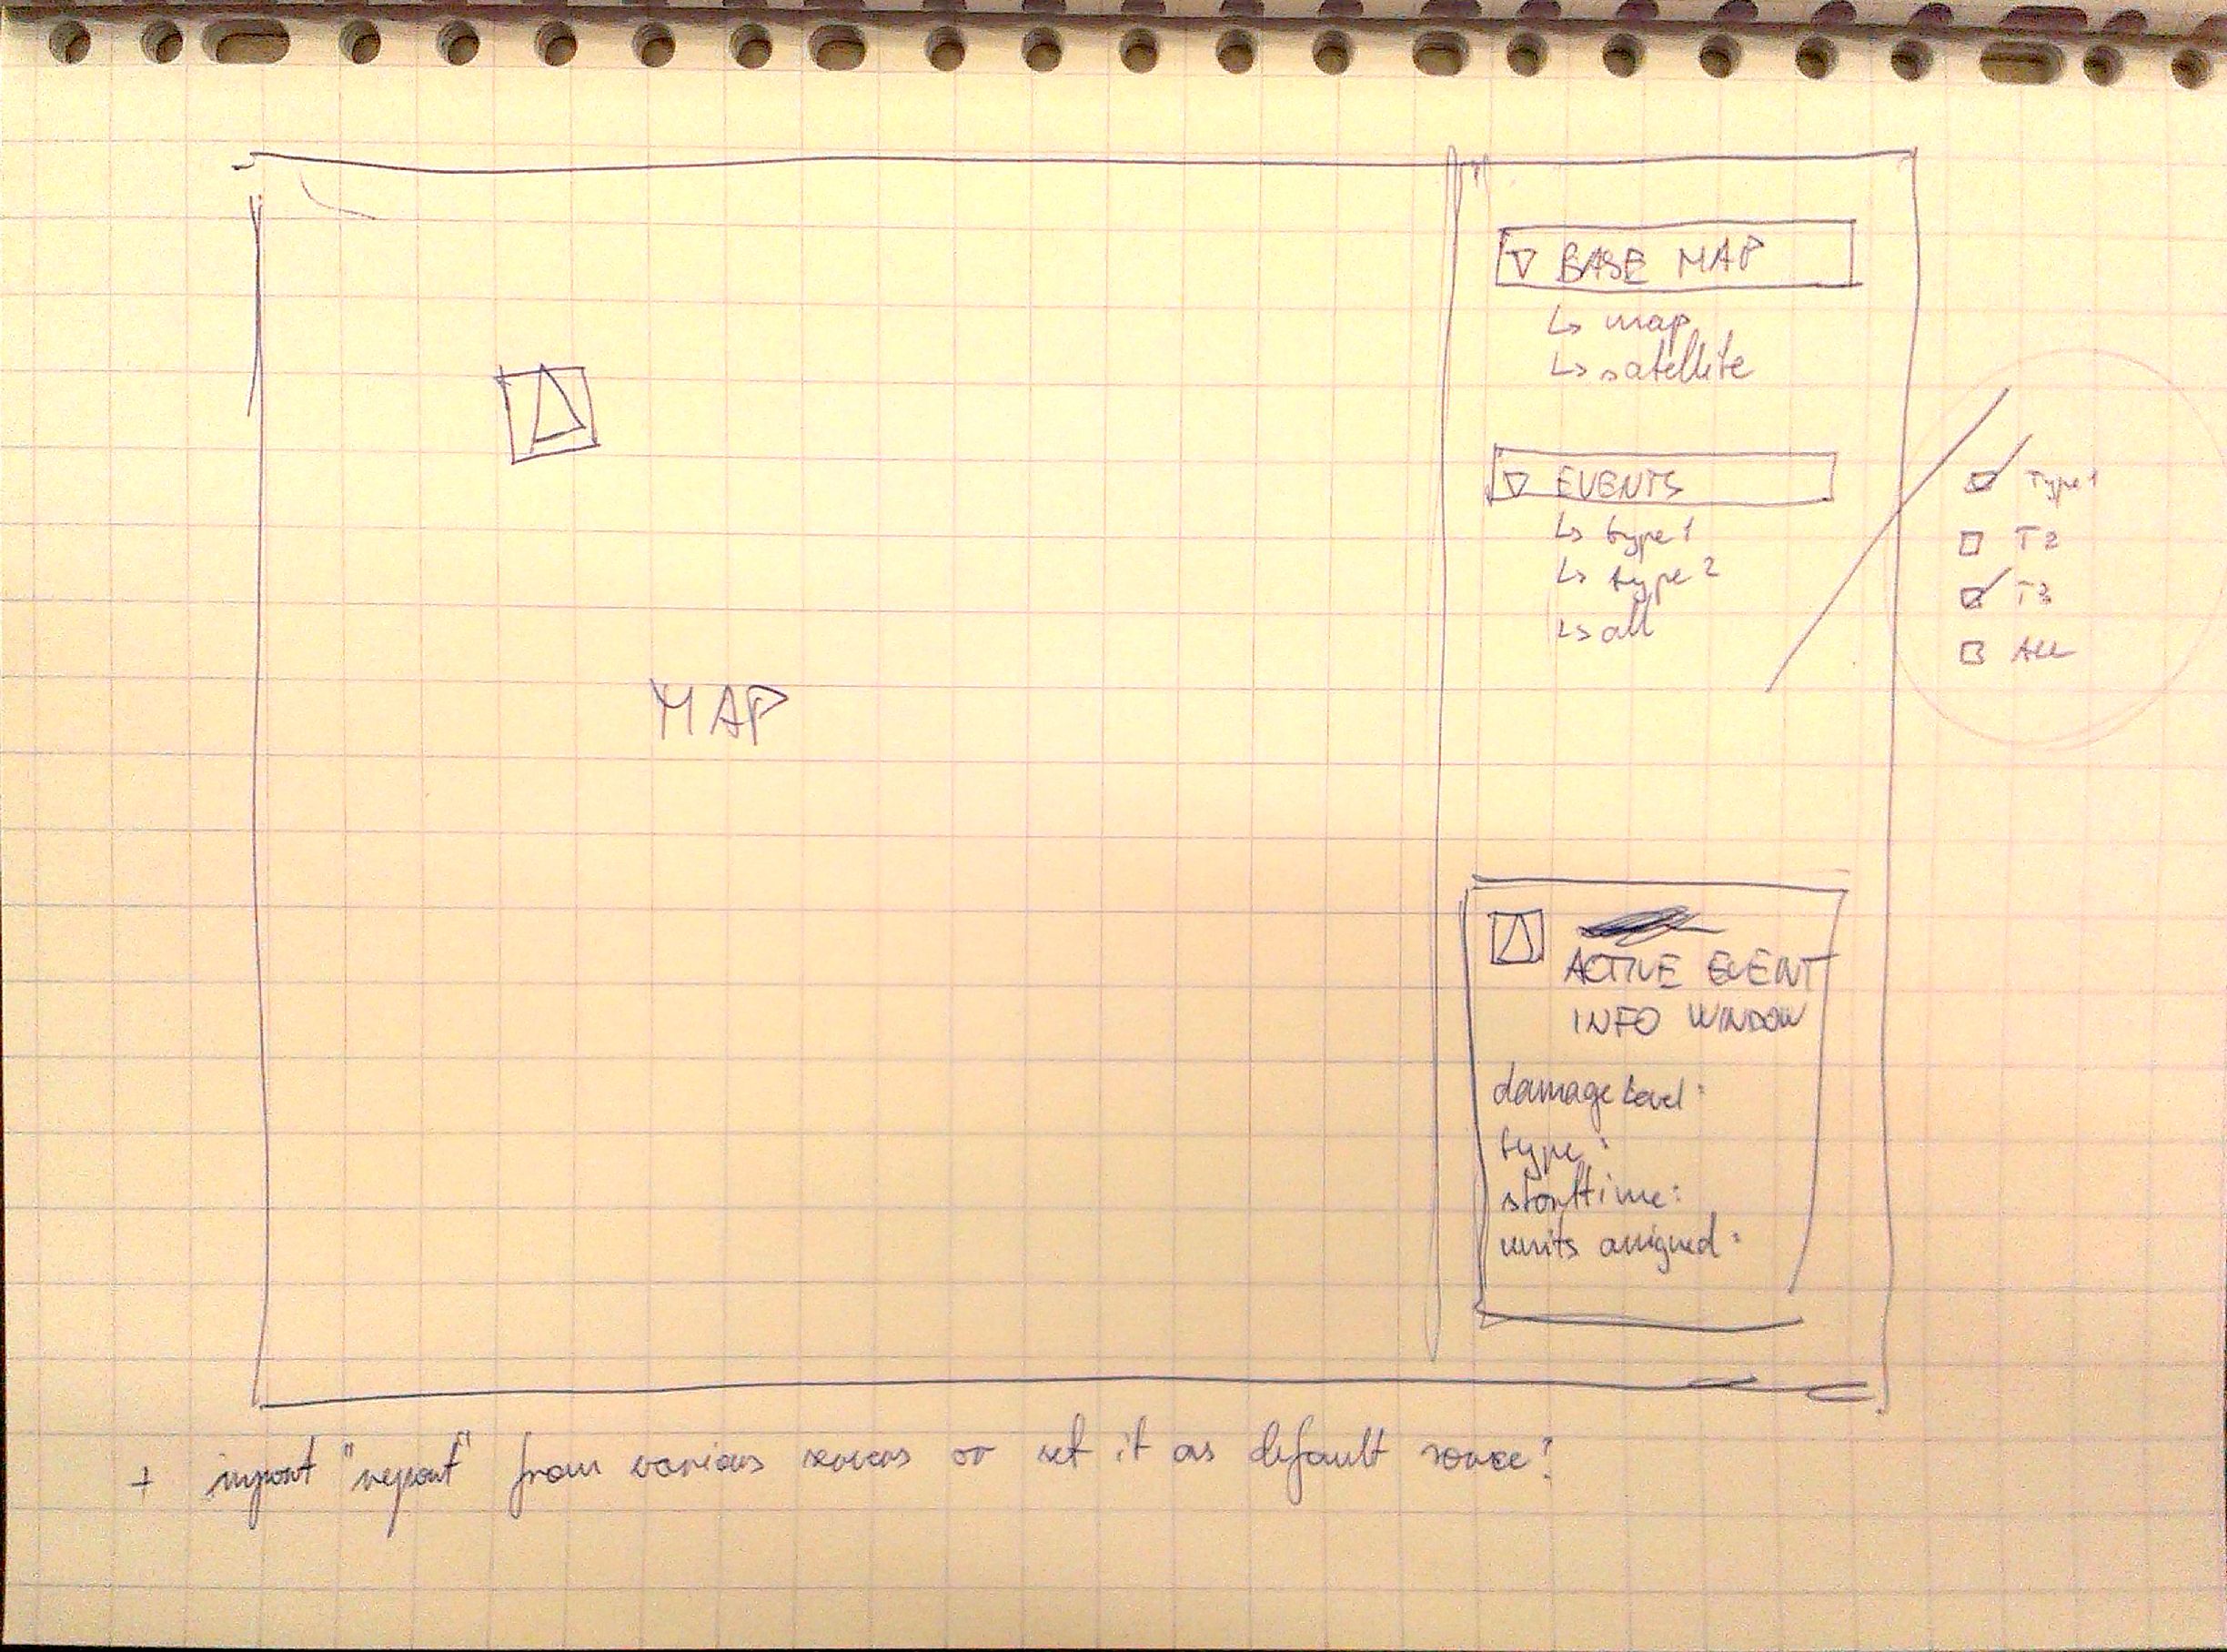 BASE MAP
map
satellite
EVENTS
type 1
type 2
all
Type 1
T2
T3
All
MAP
ACTIVE EVENT
INFO WINDOW
damage level:
type:
starttime:
units assigned:
+ import "report" from various or set it as default source?